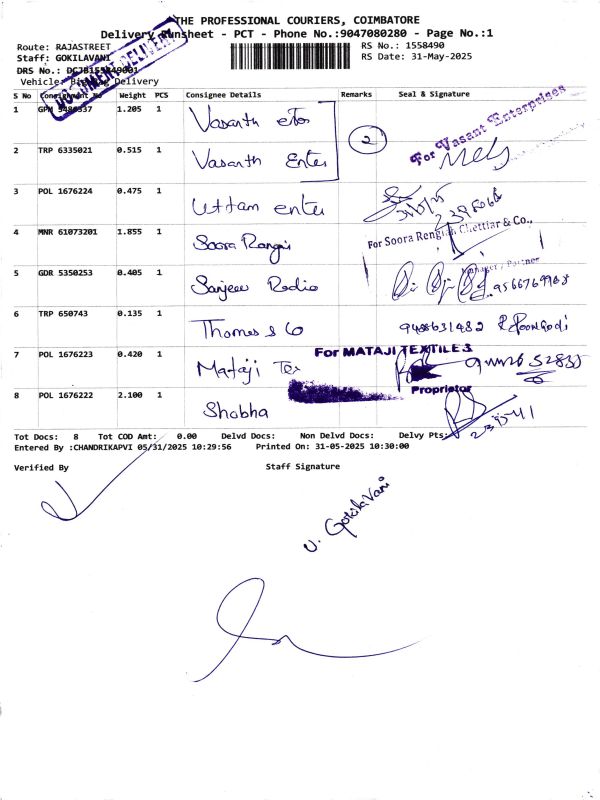 THE PROFESSIONAL COURIERS, COIMBATORE
Delivery Runsheet - PCT - Phone No.:9047080280 - Page No.:1
Route: RAJASTREET RS No.: 1558490
Staff: GOKILAVANI RS Date: 31-May-2025
DRS No.:
Vehicle: Delivery
DOCUMENT DELIVERY
S No Consignment No Weight PCS Consignee Details Remarks Seal & Signature
1 GPM 1.205 1 Vasanth
For Vasant Enterprises
2 TRP 6335021 0.515 1 Vasanth Enter 2
3 POL 1676224 0.475 1 Uttam enter
4 MNR 61073201 1.855 1 Soora Rengai For Soora Rengiah Chettiar & Co.,
Manager / Partner
5 GDR 5350253 0.405 1 Sanjeev Radio
6 TRP 650743 0.135 1 Thomas & Co
7 POL 1676223 0.420 1 Mataji Tex For MATAJI TEXTILES
Proprietor
8 POL 1676222 2.100 1 Shobha
Tot Docs: 8 Tot COD Amt: 0.00 Delvd Docs: Non Delvd Docs: Delvy Pts:
Entered By :CHANDRIKAPVI 05/31/2025 10:29:56 Printed On: 31-05-2025 10:30:00
Verified By Staff Signature
V. GokilaVani